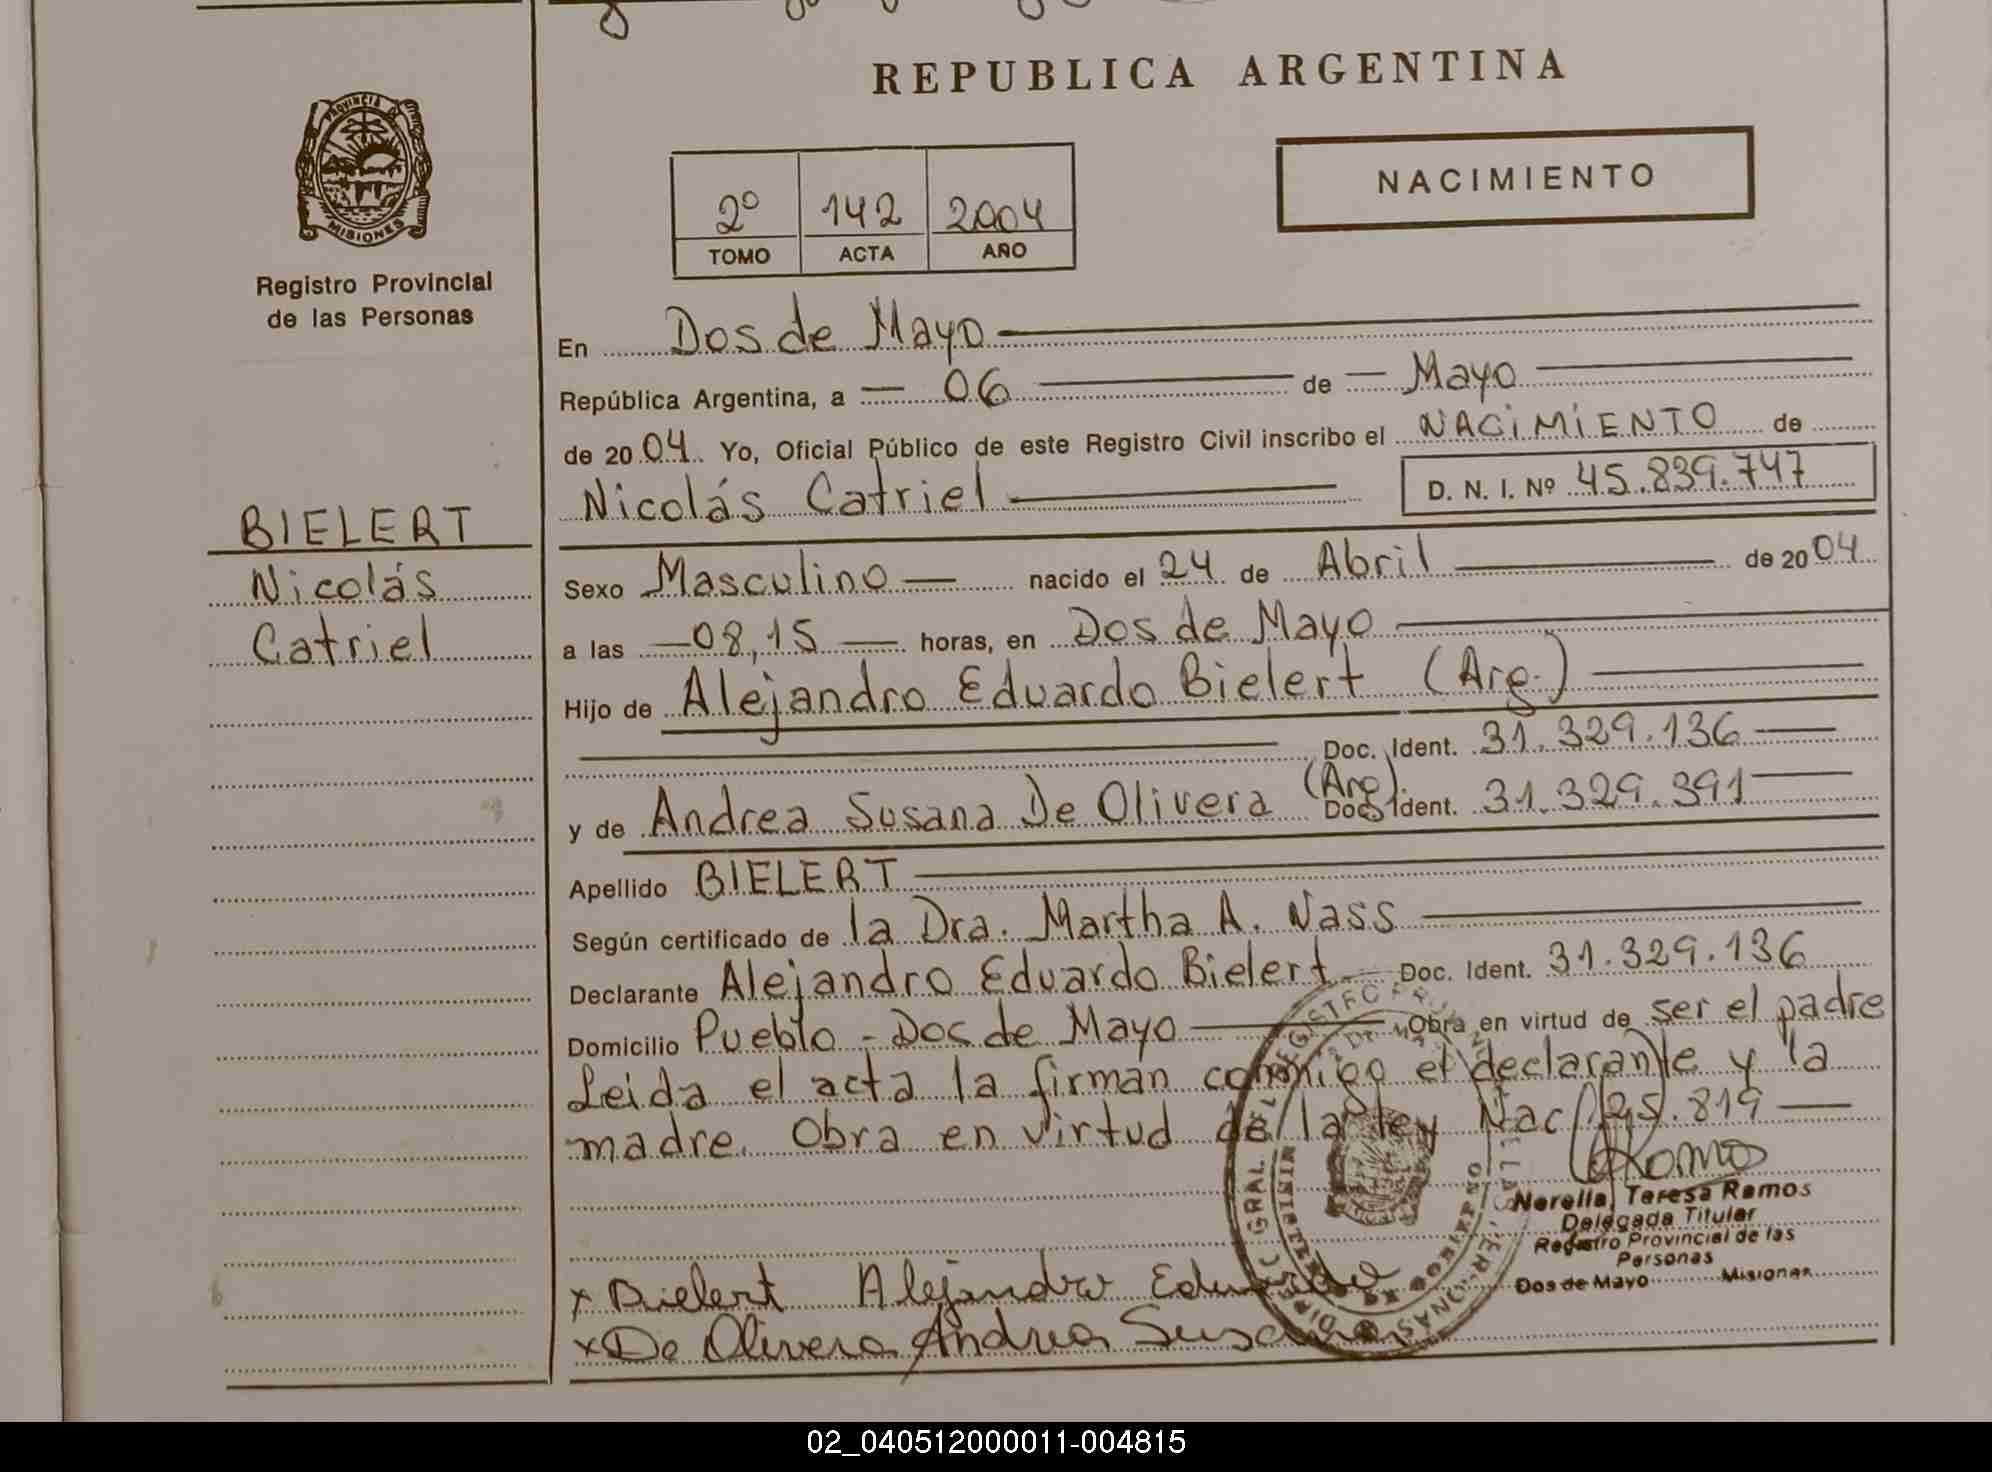 REPUBLICA ARGENTINA
PROVINCIA DE
MISIONES
Registro Provincial
de las Personas
NACIMIENTO
2º 142 2004
TOMO ACTA AÑO
En Dos de Mayo
República Argentina, a 06 de Mayo
de 2004. Yo, Oficial Público de este Registro Civil inscribo el NACIMIENTO de
Nicolás Catriel D. N. I. Nº 45.839.747
BIELERT
Nicolás
Catriel
Sexo Masculino nacido el 24 de Abril de 2004
a las 08,15 horas, en Dos de Mayo
Hijo de Alejandro Eduardo Bielert (Arg.)
Doc. Ident. 31.329.136
y de Andrea Susana De Olivera (Arg) Doc. Ident. 31.329.391
Apellido BIELERT
Según certificado de la Dra. Martha A. Nass
Declarante Alejandro Eduardo Bielert Doc. Ident. 31.329.136
Domicilio Pueblo - Dos de Mayo Obra en virtud de ser el padre
Leida el acta la firman conmigo el declarante y la
madre. Obra en virtud de la ley Nac. 25.819
Norella Teresa Ramos
Delegada Titular
Registro Provincial de las
Personas
Dos de Mayo Misiones
x Bielert Alejandro Eduardo
x De Olivera Andrea Susana
02_040512000011-004815